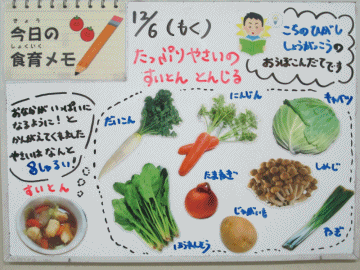 きょう
今日の
しょくいく
食育メモ
12/6(もく)
たっぷりやさいの
すいとん とんじる
こちの ひがし
しょうがっこうの
おうぼこんだてです
おなかが いっぱいに
なるように!と
かんがえてくれました
やさいは なんと
8しゅるい!
すいとん
だいこん
にんじん
キャベツ
たまねぎ
しめじ
じゃがいも
ほうれんそう
ねぎ